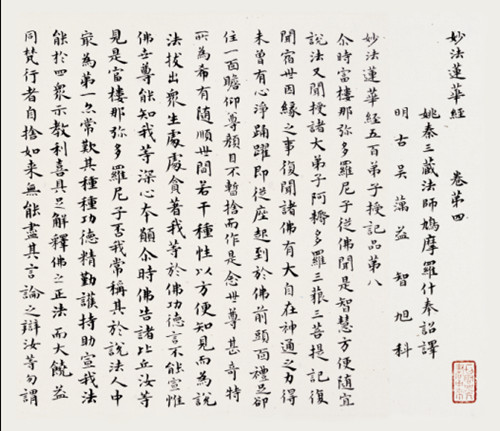 妙法蓮華經 卷第四
姚秦三藏法師鳩摩羅什奉詔譯
明古吳蕅益智旭科
妙法蓮華經五百弟子授記品第八
尒時富樓那弥多羅尼子從佛聞是智慧方便隨宜
說法又聞授諸大弟子阿耨多羅三藐三菩提記復
聞宿世因緣之事復聞諸佛有大自在神通之力得
未曾有心淨踊躍即從座起到於佛前頭面禮足卻
住一面瞻仰尊顏目不暫捨而作是念世尊甚奇特
所為希有隨順世間若干種性以方便知見而為說
法拔出眾生處處貪著我等於佛功德言不能宣惟
佛世尊能知我等深心本願尒時佛告諸比丘汝等
見是富樓那弥多羅尼子否我常稱其於說法人中
最為第一亦常歎其種種功德精勤護持助宣我法
能於四眾示教利喜具足解釋佛之正法而大饒益
同梵行者自捨如來無能盡其言論之辯汝等勿謂